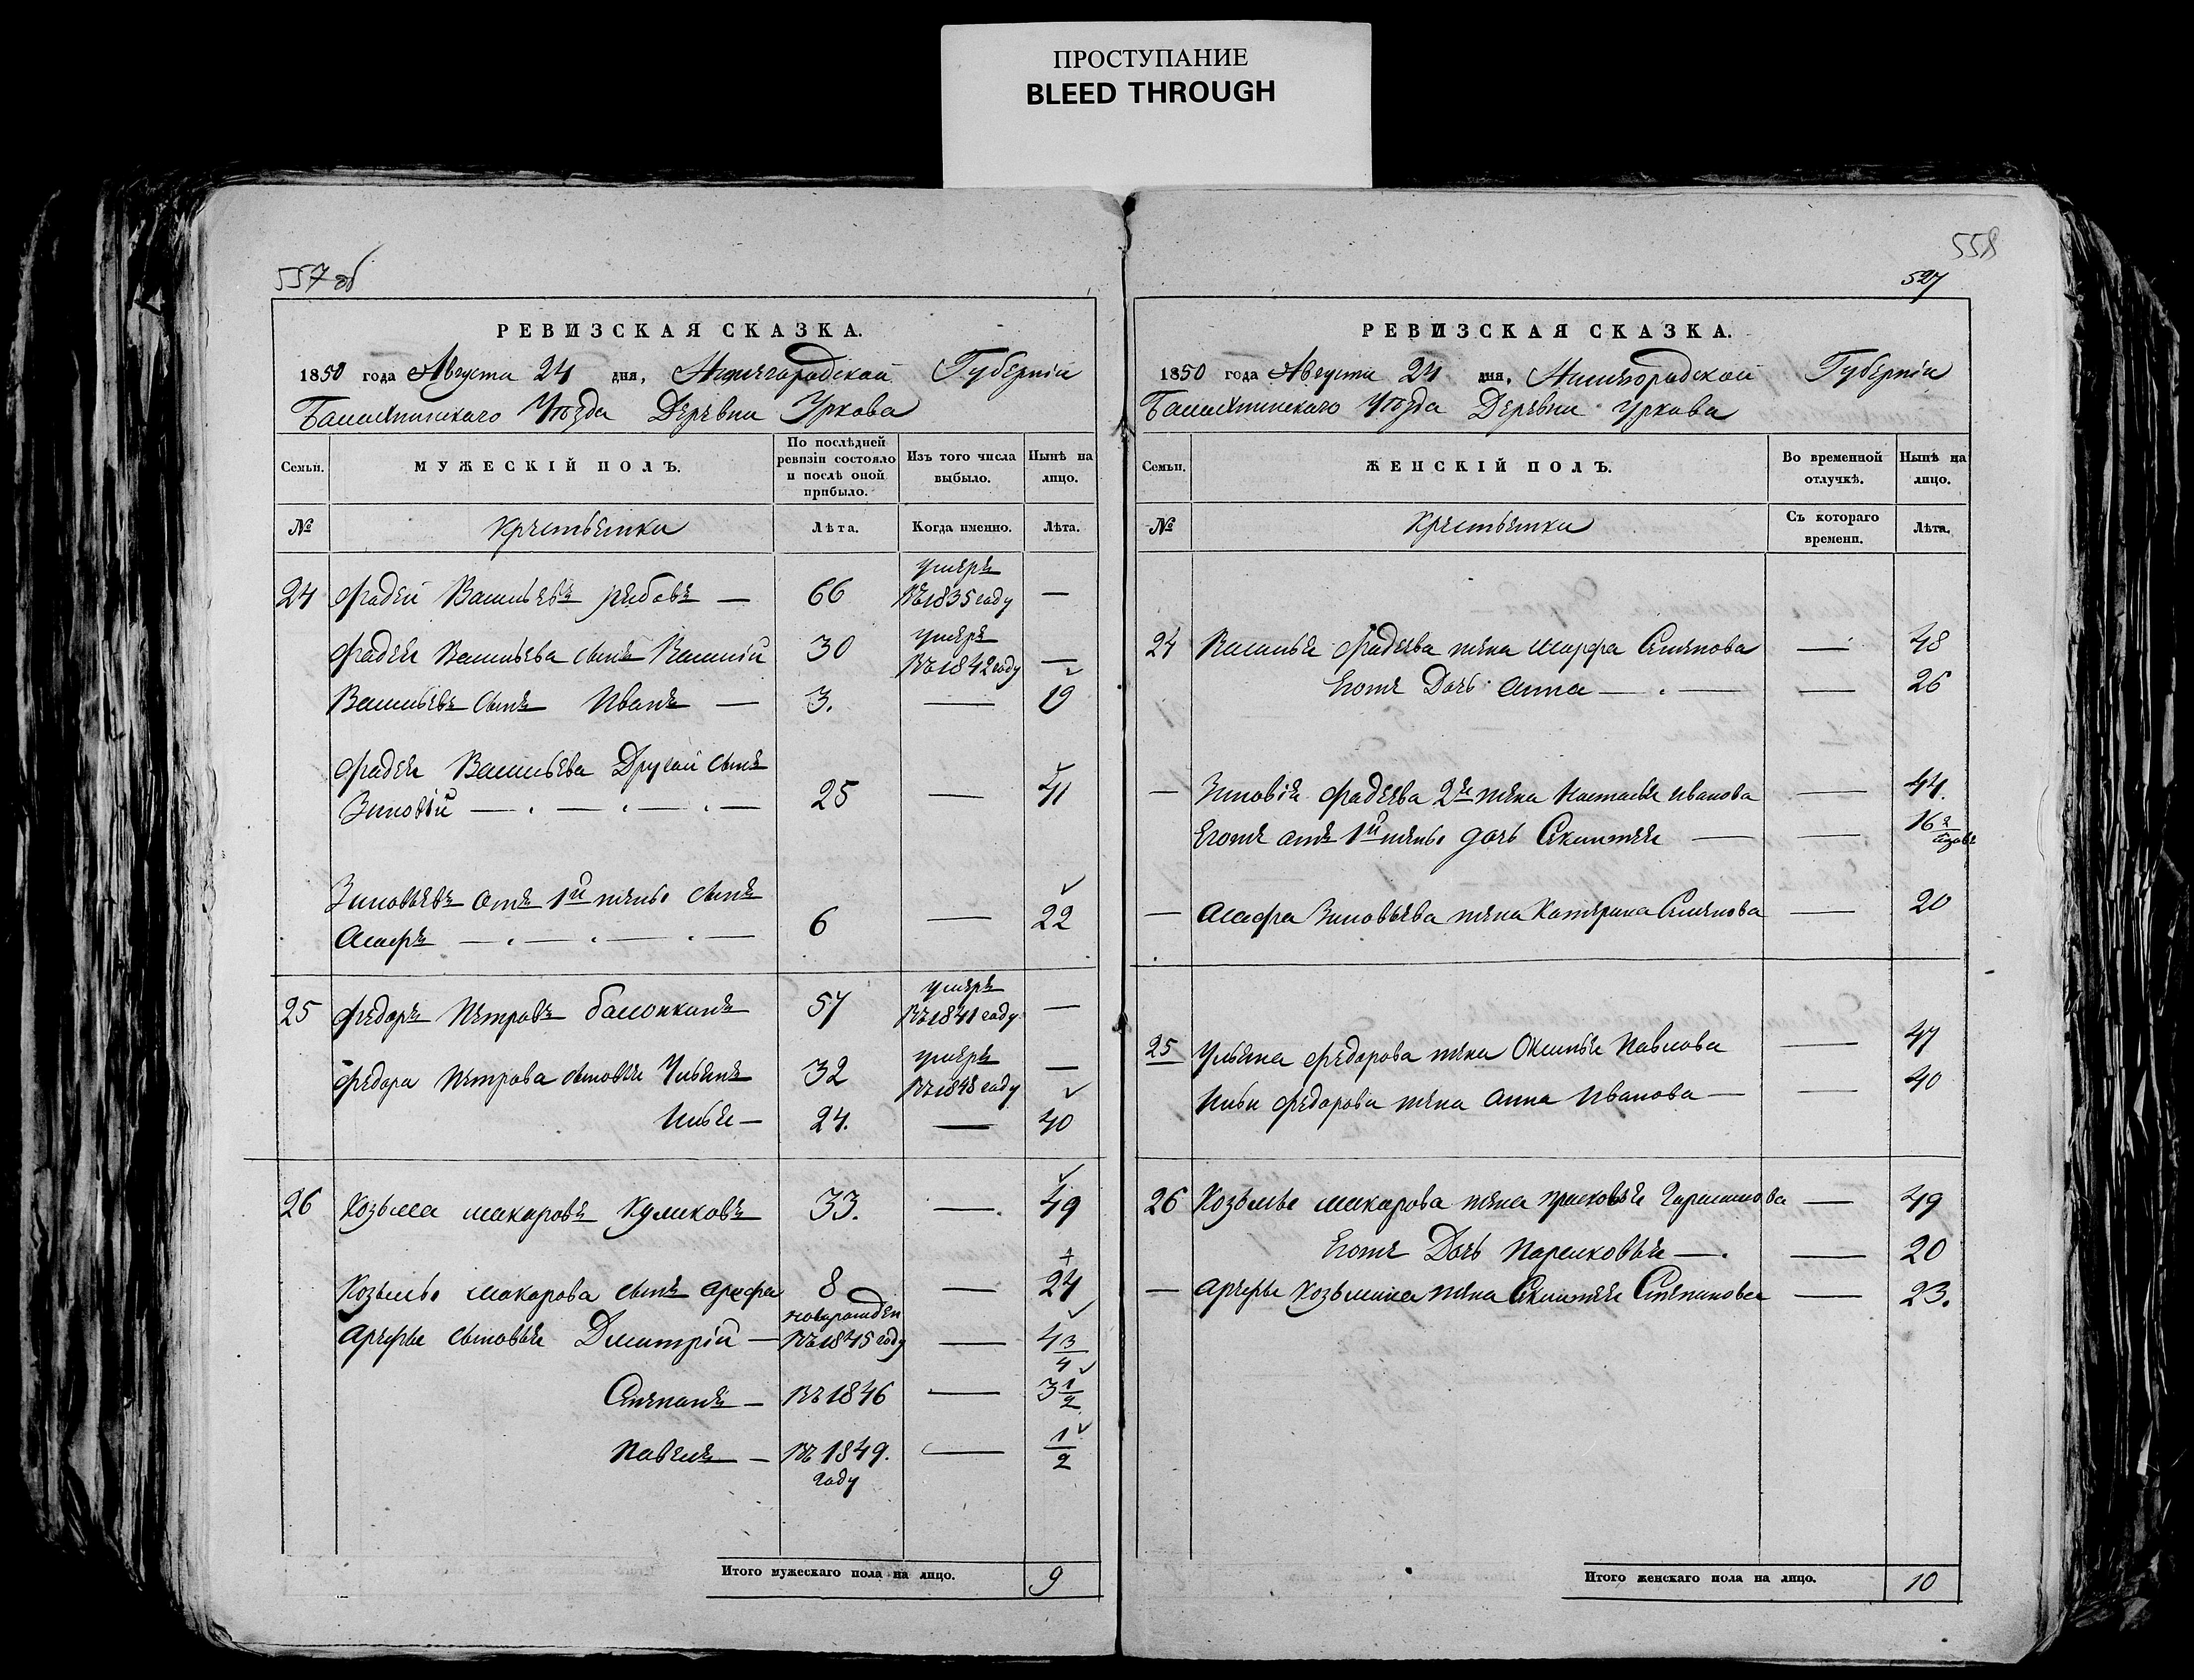 ПРОСТУПАНИЕ
BLEED THROUGH
557 об
РЕВИЗСКАЯ СКАЗКА.
1850 года Августа 24 дня, Нижегородской Губерніи
Балахнинскаго Уѣзда Деревни Уркова
Семьи.
МУЖЕСКІЙ ПОЛЪ.
По послѣдней ревизіи состояло и послѣ оной прибыло.
Изъ того числа выбыло.
Нынѣ на лицо.
№
Лѣта.
Когда именно.
Лѣта.
24 Фадей Васильевъ — 66 умеръ въ 1835 году —
Фадея Васильева сынъ Василій 30 умеръ въ 1842 году —
Васильевъ сынъ Иванъ — 3. — 19
Фадея Васильева Другой сынъ
Зиновій — 25 — 41
Зиновьевъ отъ 1й жены сынъ
Асафъ — 6 — 22
25 Федоръ Петровъ 57 умеръ въ 1841 году —
Федора Петрова сыновья Ульянъ 32 умеръ въ 1848 году —
Илья — 24. — 40
26 Козьма Макаровъ Куликовъ 33. — 49
Козьмы Макарова сынъ Арефа 8 — 24
Арефы сыновья Дмитрій — новорожден въ 1845 году — 4 3/4
Степанъ — въ 1846 — 3 1/2
Павелъ — въ 1849. году — 1/2
Итого мужескаго пола на лицо. 9
558
527
РЕВИЗСКАЯ СКАЗКА.
1850 года Августа 24 дня, Нижегородской Губерніи
Балахнинскаго Уѣзда Деревни Уркова
Семьи.
ЖЕНСКІЙ ПОЛЪ.
Во временной отлучкѣ.
Нынѣ на лицо.
№
Съ котораго времени.
Лѣта.
24 Василья Фадеева жена Марфа Семенова — 48
Егоже Дочь Анна — — 26
— Зиновія Фадеева 2я жена Настасья Иванова — 44.
Егоже отъ 1й жены дочь — — 16
— Асафа Зиновьева жена Катерина Семенова — 20
25 Ульяна Федорова жена Павлова — 47
Ильи Федорова жена Анна Иванова — — 40
26 Козьмы Макарова жена Прасковья — 49
Егоже Дочь — — 20
— Арефы Козьмина жена Степанова — 23.
Итого женскаго пола на лицо. 10